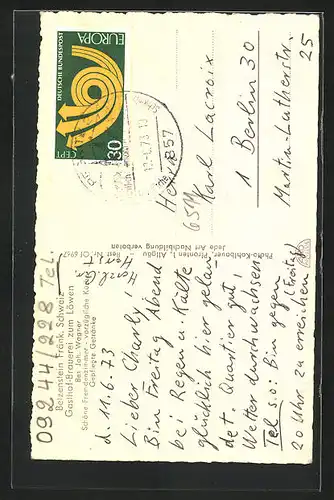 09244/228 Tel.
Betzenstein Fränk. Schweiz
Gasthof-Brauerei zum Löwen
Bes. Joh. Wagner
Schöne Fremdenzimmer - vorzügliche Küche
Gepflegte Getränke
d. 11.6.73
Lieber Charly!
Bin Freitag Abend
bei Regen u. Kälte
glücklich hier gelan-
det. Quartier gut,
Wetter durchwachsen
Tel s.o: Bin gegen
20 Uhr zu erreichen
(Freitag)
Foto-Kohlbauer, Pfronten i. Allgäu
Jede Art Nachbildung verboten
Best. Nr. 01 6967
DEUTSCHE BUNDESPOST
EUROPA
CEPT
30
12.-6.73
8571
Herrn
Karl Lacroix
1 Berlin 30
Martin-Lutherstr.
25